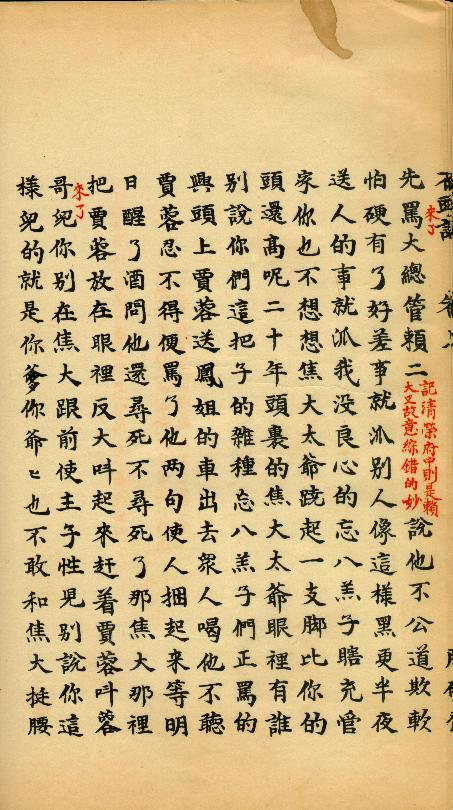 先罵大總管賴二
來了
記清榮府中則是賴
大又故意綜錯的妙
說他不公道欺軟
怕硬有了好差事就派別人像這樣黑更半夜
送人的事就派我没良心的忘八羔子瞎充管
家你也不想想焦大太爺蹺起一支脚比你的
頭還高呢二十年頭裏的焦大太爺眼裡有誰
別說你們這把子的雜種忘八羔子們正罵的
興頭上賈蓉送鳳姐的車出去衆人喝他不聽
賈蓉忍不得便罵了他两句使人捆起來等明
日醒了酒問他還尋死不尋死了那焦大那裡
把賈蓉放在眼裡反大呌起來赶着賈蓉呌蓉
來了
哥兒你別在焦大跟前使主子性兒別說你這
樣兒的就是你爹你爺〻也不敢和焦大挺腰